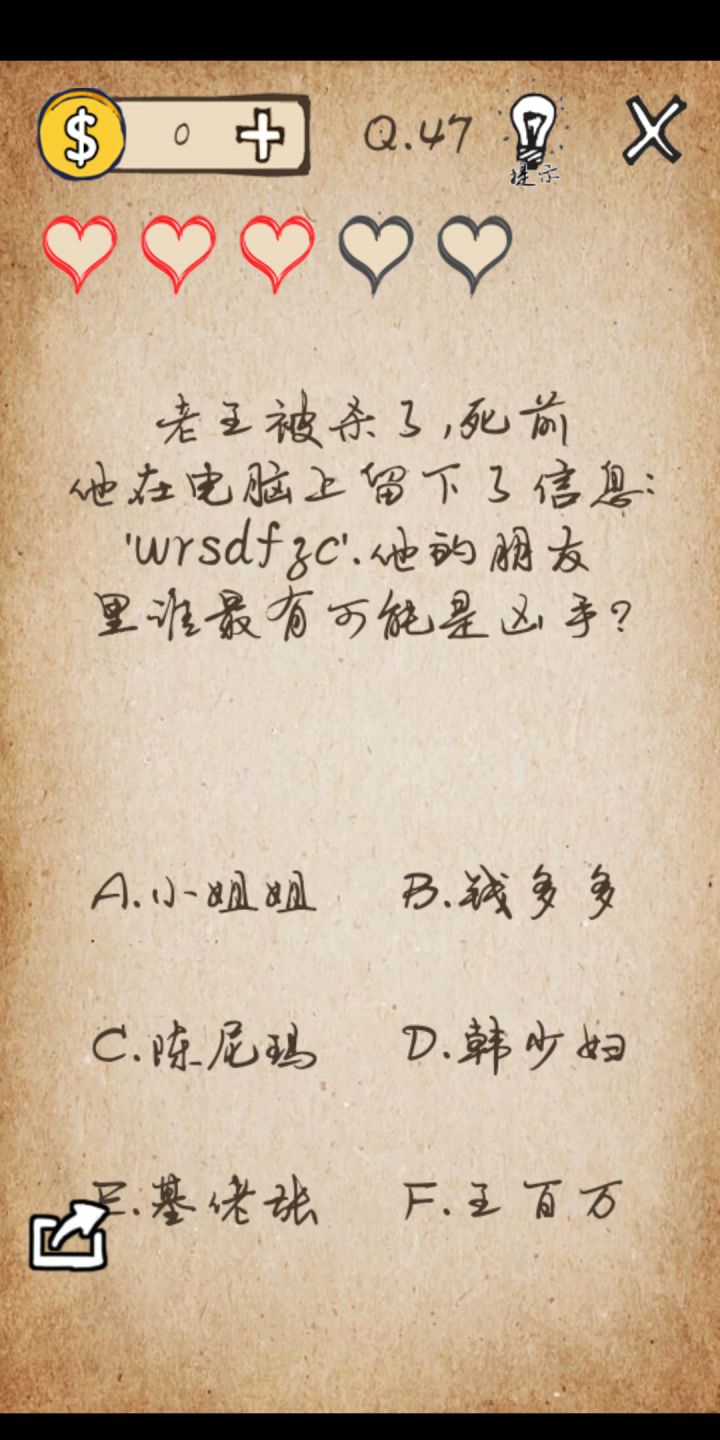 0
Q.47
提示
老王被杀了,死前
他在电脑上留下了信息:
'wrsdfzc'.他的朋友
里谁最有可能是凶手?
A.小姐姐 B.钱多多
C.陈尼玛 D.韩少妇
E.基佬张 F.王百万